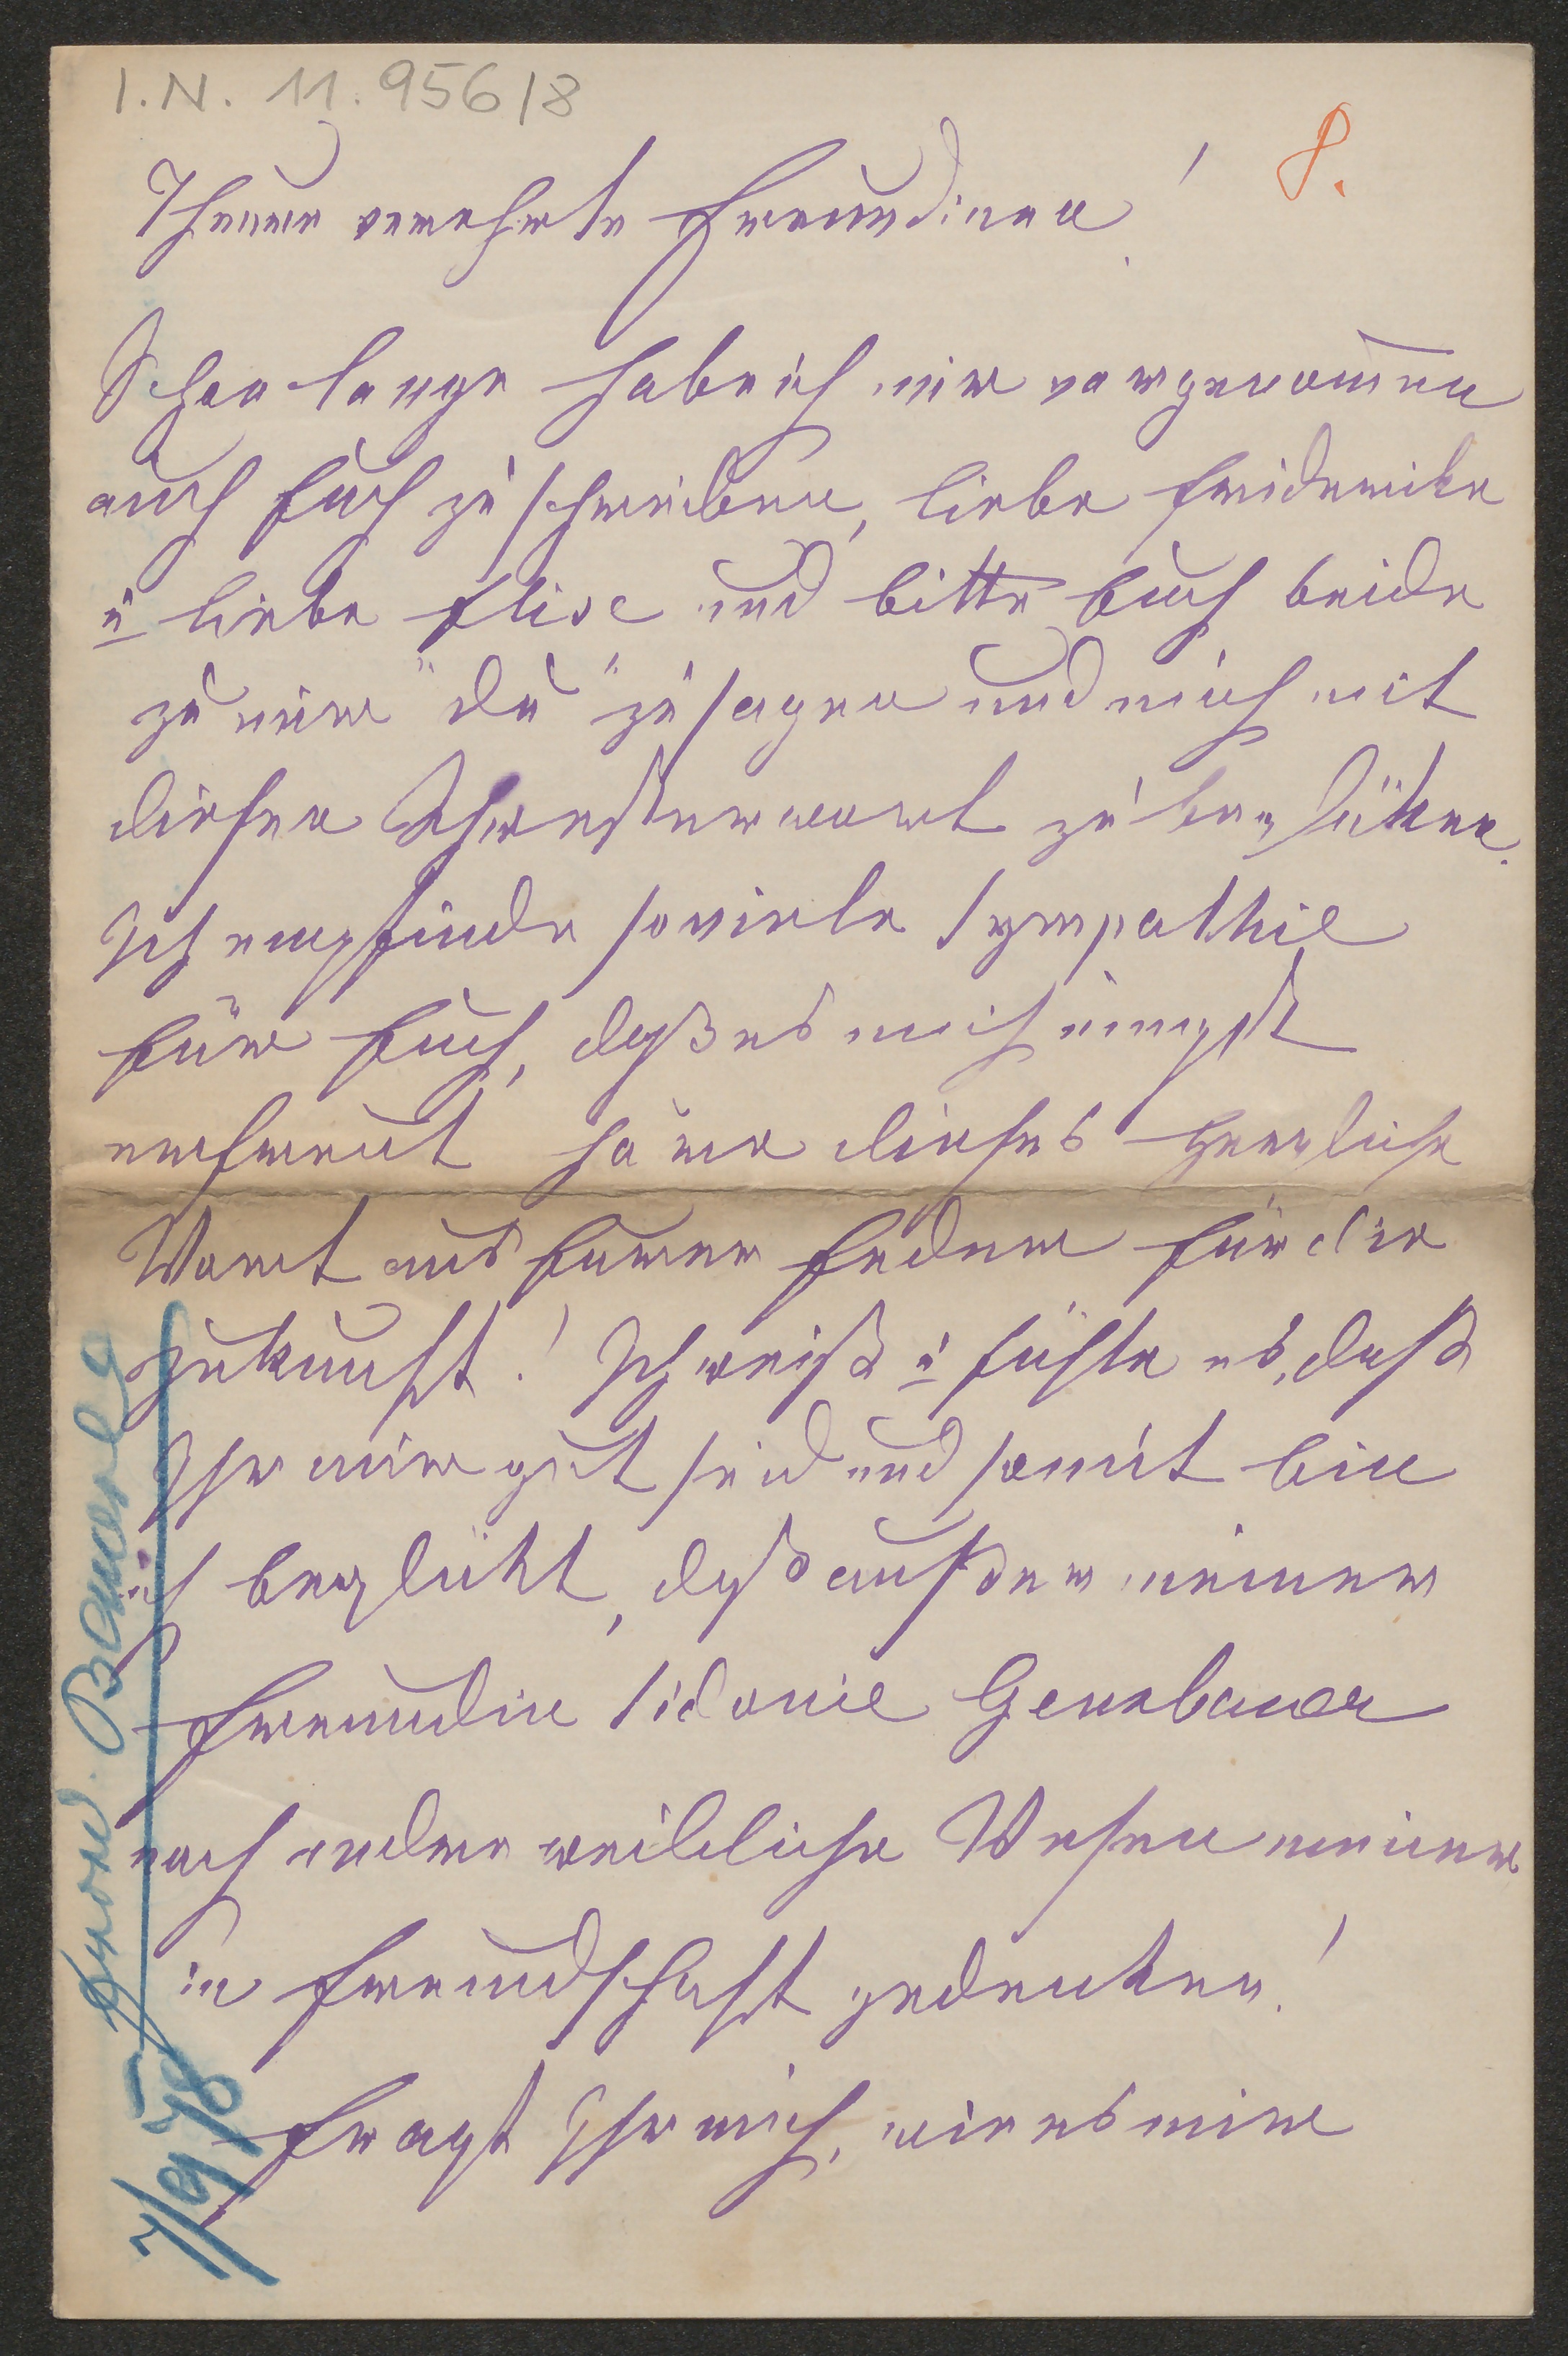 I.N. 11.956/8
8.
Theuere verehrte Freundinen!
Schon lange habe ich mir vorgenom̅en
auch Euch zu schreiben, liebe Friderike
u liebe Elise und bitte Euch beide
zu mir "du" zu sagen und mich mit
diesen Schwesterwort zu beglüken.
Ich empfinde soviele Sympathie
für Euch, daß es mich
erfreut dieses herzliche
Wort aus Eurer Feder für die
Zukunft! Ich weiß u fühle es, daß
Ihr mir gut seid und somit bin
ich beglükt, daß außer meiner
Freundin Sidonie Genebauer
noch andere weibliche Wesen meiner
in Freundschaft gedenken!
Fragt Ihr mich, wie es mir
7/9 78